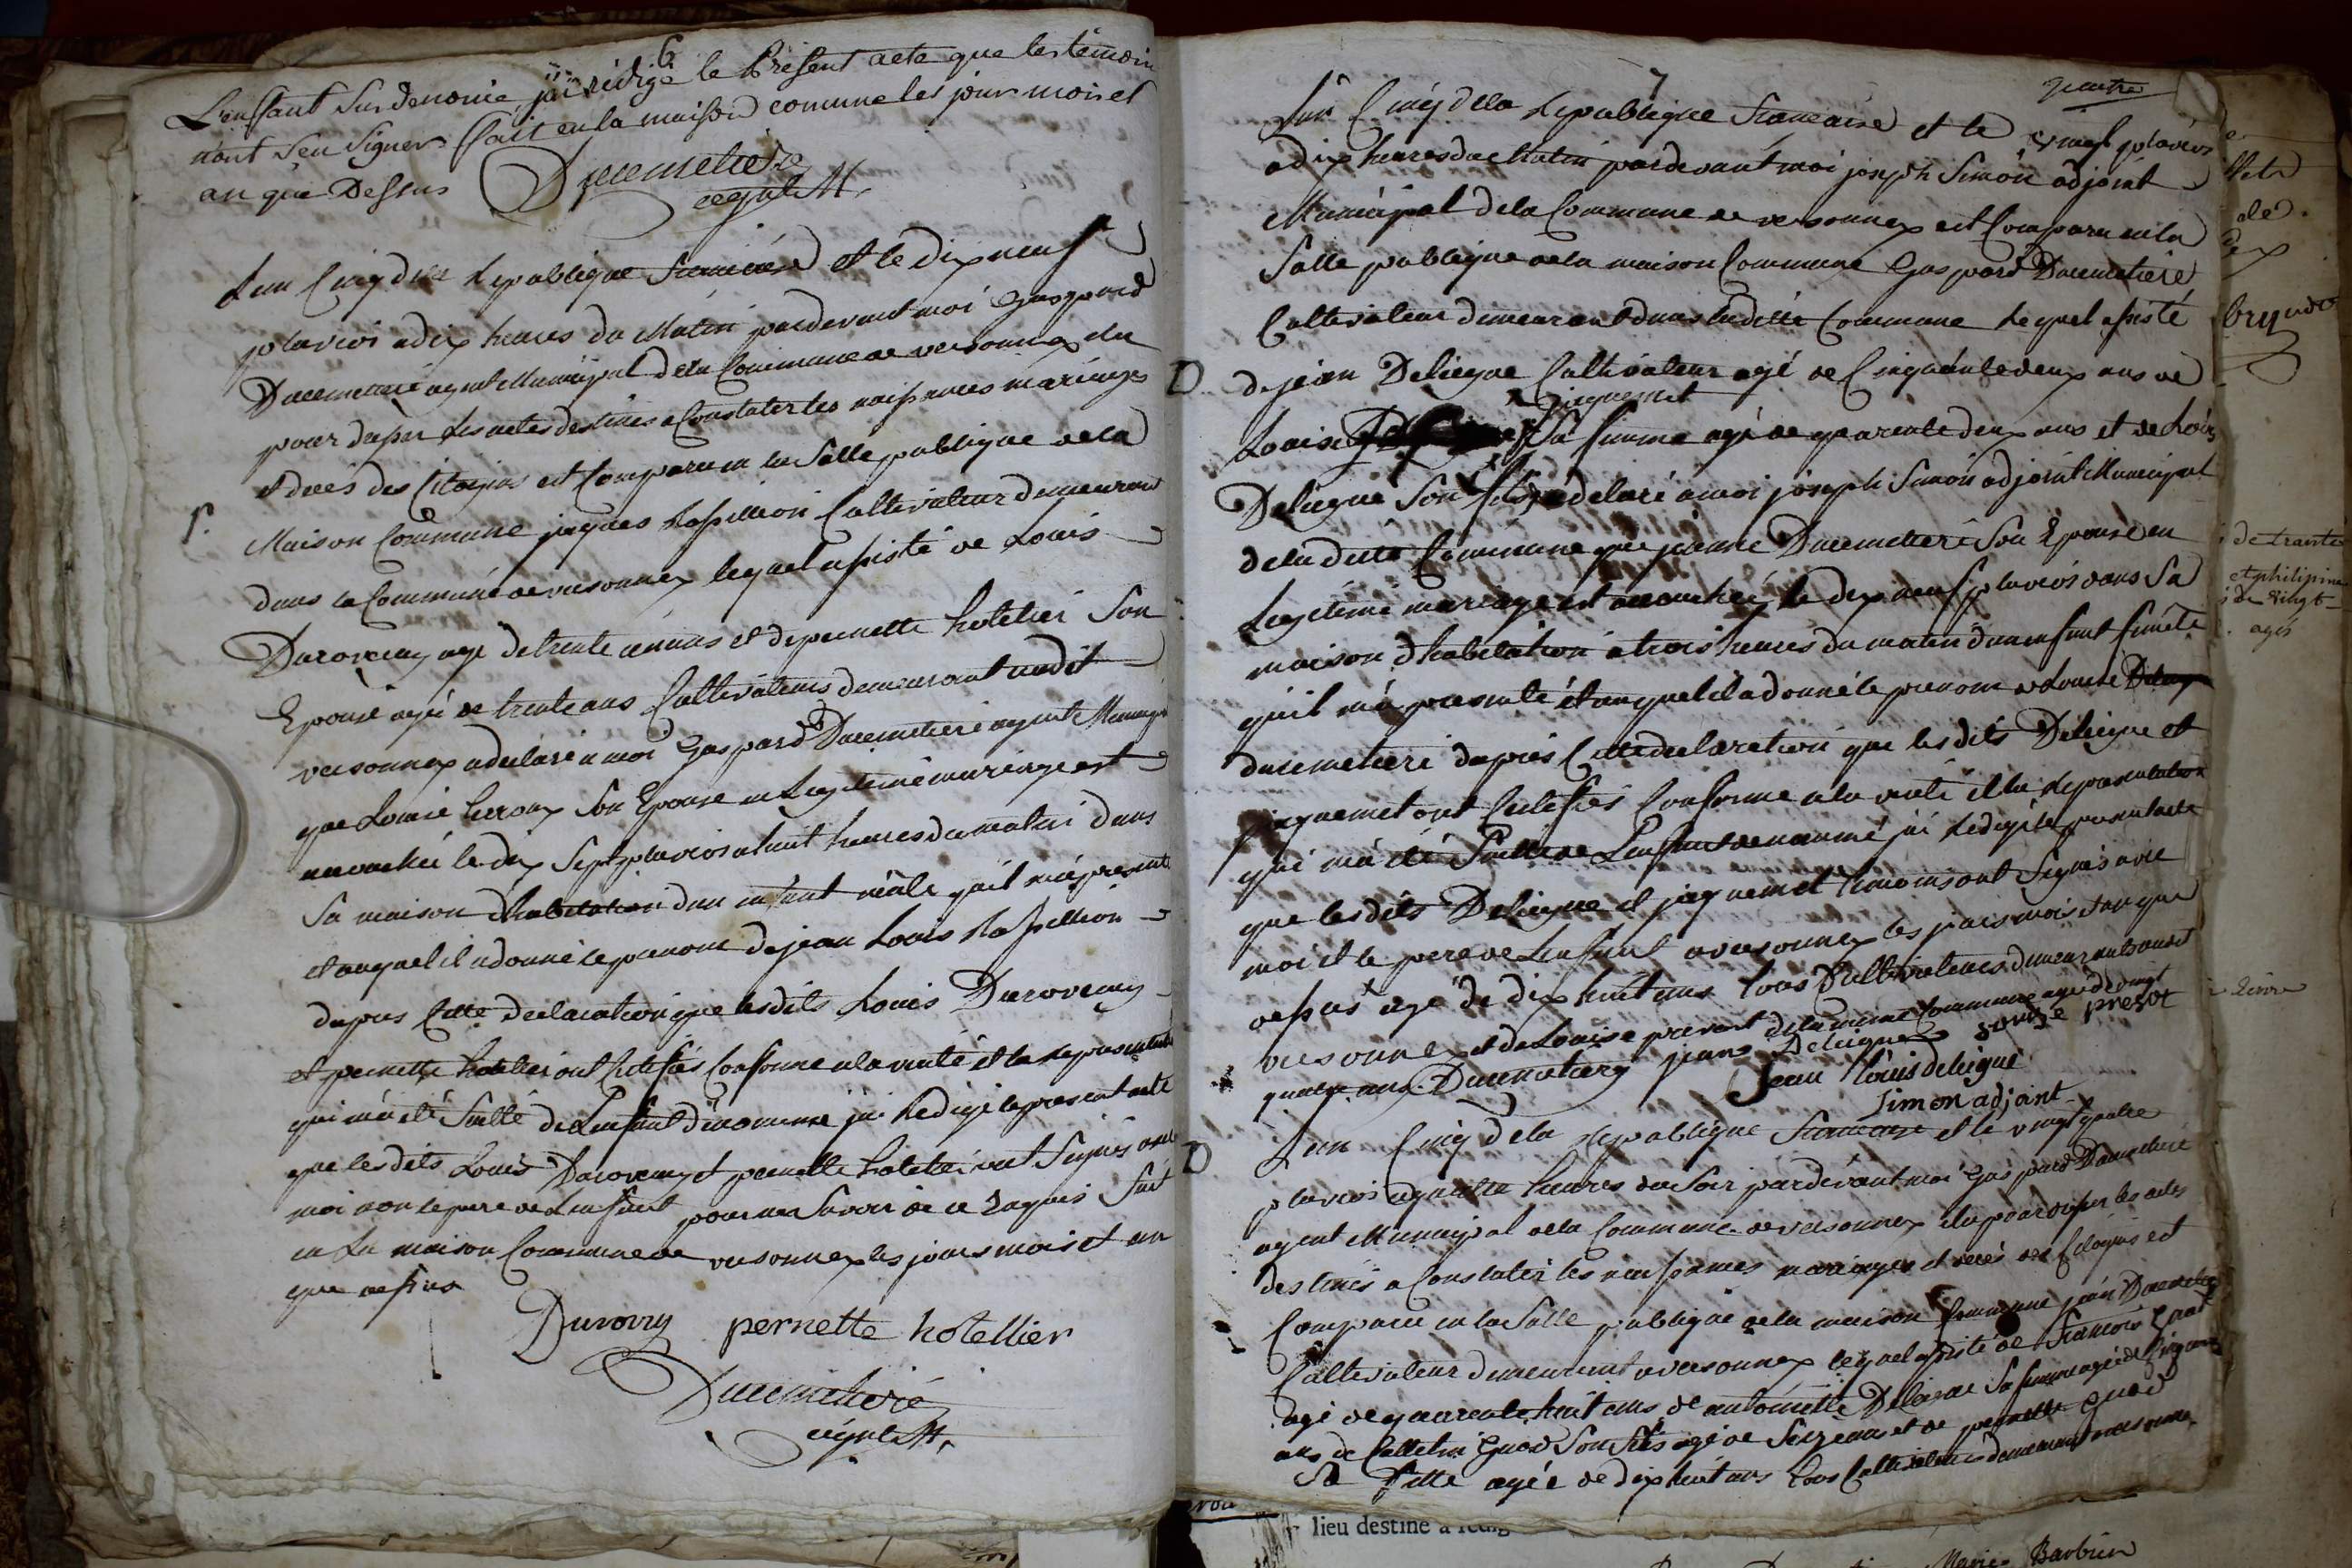 6
L'enffant Sus denomé j'ai rédigé le Présent acte que les témoin
n'ont Seu Signer fait en la maison comune les jour mois et
an que Dessus Ducimetiere
agent M.
L'an Cinq de la Republique francaise et le dix neuf
pluvios a dix heures du Matin pardevant moi Gaspard
Ducimetiere agent Municipal de la Commune de versonnex elu
pour dresser les actes destinés a Constater les naissances mariages
et decès des Citoyens est Comparu en la Salle publique de la
P.
Maison Commune jaques Rossillion Cultivateur demeurant
dans la Commune de versonnex lequel assisté de Louis
Durovray agé de trente ans et de pernette hotelier Son
Epouse agée de trente ans Cultivateurs demeurant audit
versonnex a declaré a moi Gaspard Ducimetiere agent Municip
que Louise heroux Son Epouse en Legitime mariage est
accouchée le dix Sept pluvios a huit heures du matin dans
Sa maison d'habitation d'un enfant mâle qu'il m'a presenté
et auquel il a donné le prenom de jean Louis Rossillion
dapres Cette declaration que les dits Louis Durovray
et pernette hotelier ont Certifiés Conforme a la verité et la representation
qui m'a été faitte de L'enfant denommé j'ai Redigé le present acte
que les dits Louis Durovray et pernette hotelier ont Signés avec
moi non le pere de L'enfant pour ne Savoir de ce Enquis fait
en La maison Commune de versonnex les jours mois et an
que dessus
Durovry pernette hotellier
Ducimetiere
agent M.
7
quatre
L'an Cinq de la Republique francaise et le vingt pluvios
a dix heures du Matin pardevant moi joseph Simon adjoint
Municipal de la Commune de versonnex est Comparu en la
Salle publique de la maison Commune Gaspard Ducimetiere
Cultivateur demeurant dans ladite Commune Lequel assisté
D
de jean Delieque Cultivateur agé de Cinquante deux ans de
jaquemet
Louise Sa femme agé de quarente deux ans et de Louis
Delieque Son fils a declaré a moi joseph Simon adjoint Municipal
de la ditte Commune que jeanne Ducimetiere Son Epouse en
Legitime mariage est accouchée le dix neuf pluvios dans Sa
maison d'habitation a trois heures du matin d'un enfant femele
qu'il m'a presenté et auquel il a donné le prenom de Louise
ducimetiere dapres Cette declaration que les dits Delieque et
jaquemet ont Certifiés Conforme a la verité et la representation
qui m'a été faitte de L'enfant denommé j'ai Redigé le present acte
que les dits Delieque et jaquemet temoins ont Signés avec
moi et le pere de L'enfant a versonnex les jours mois et an que
dessus agé de dix huit ans tous Cultivateurs demeurant audit
versonnex et de Louise prevost de la meme Commune agée de vingt
quatre ans. Ducimetiere jean Delieque louise prevot
Jean louis delieque
Simon adjoint
D
L'an Cinq de la Republique francaise et le vingt quatre
pluvios a quattre heures du Soir pardevant moi Gaspard Ducimetiere
agent Municipal de la Commune de versonnex elu pour dresser les actes
destinés a Constater les naissances mariages et decés des Citoyens est
Comparu en la Salle publique de la maison Commune jean Ducimetiere
Cultivateur demeurant a versonnex lequel assisté de francois
agé de quarente huit ans de antoinette Delieque Sa femme agée de Cinquante
ans de Son fils agé de Seize ans et de pernette
Sa fille agée de dix huit ans tous Cultivateurs demeurant a versonnex
de trante
et philipine
de vingt
agés
lieu destiné à rédig
Marie Barbier